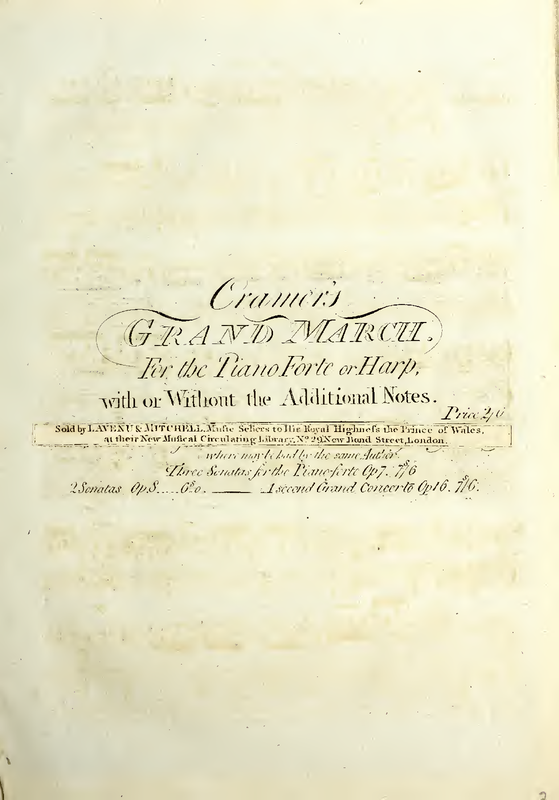 Cramer's
GRAND MARCH.
For the Piano Forte or Harp,
with or Without the Additional Notes.
Price 2/6
Sold by LAVENU & MITCHELL, Music Sellers to His Royal Highneſs the Prince of Wales,
at their New Musical Circulating Library, No. 29 New Bond Street, London.
where may be had by the same Author
Three Sonatas for the Piano-forte Op 7. 7s/6
2 Sonatas Op 8 ..... 6s. 0. ——— A second Grand Concerto Op 16. 7s/6.
2